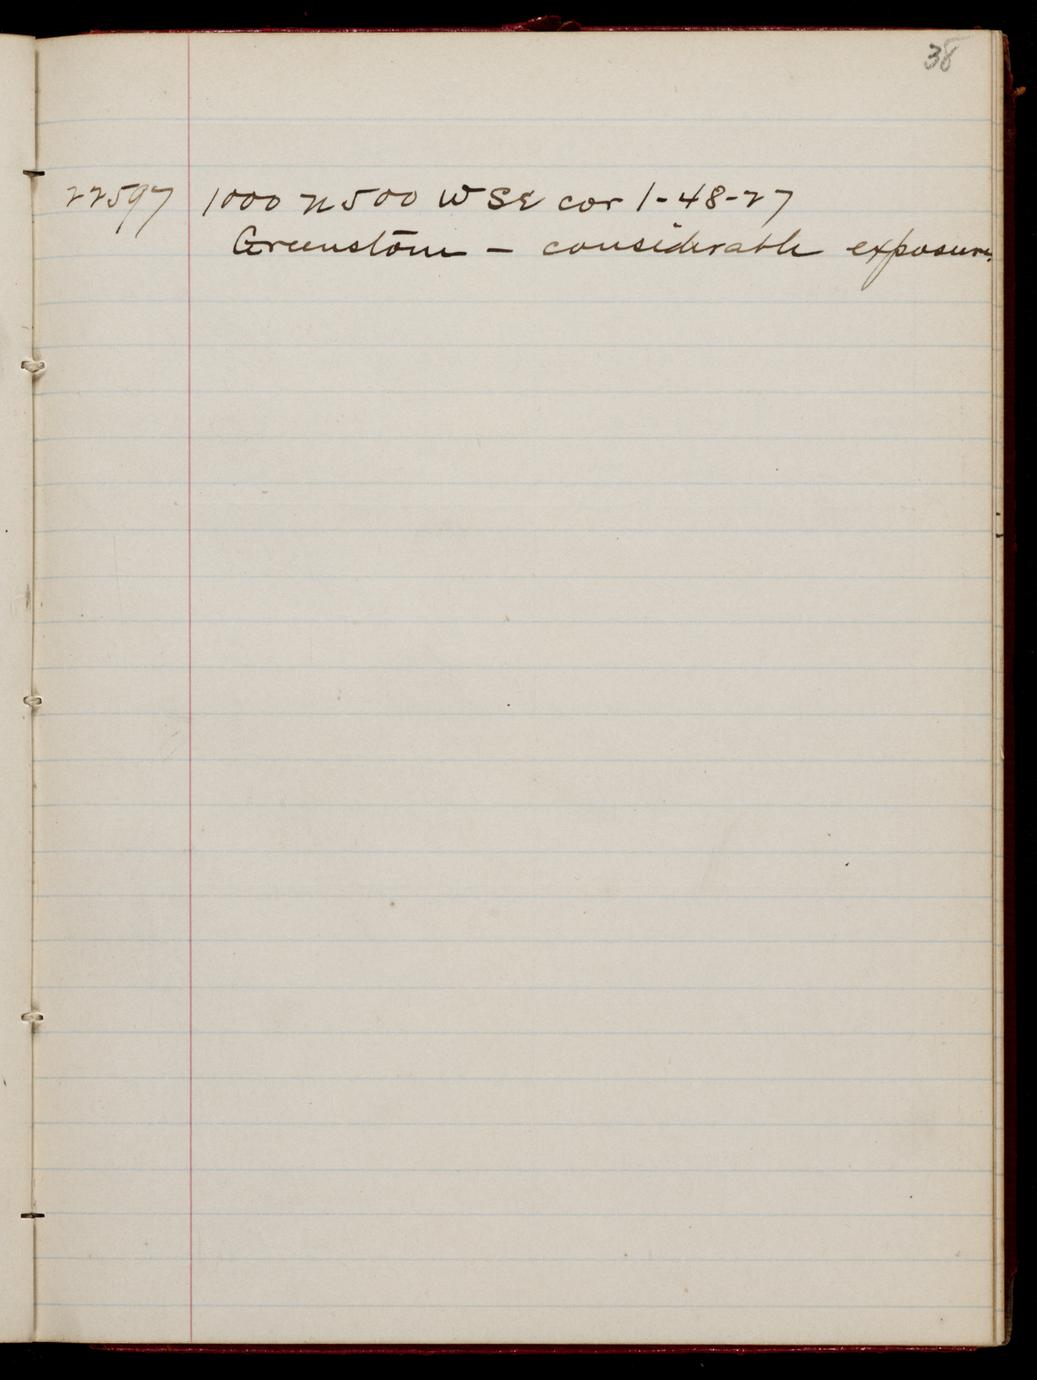 38
22597 1000 N 500 W SE cor 1-48-27
Greenstone - considerable exposure.